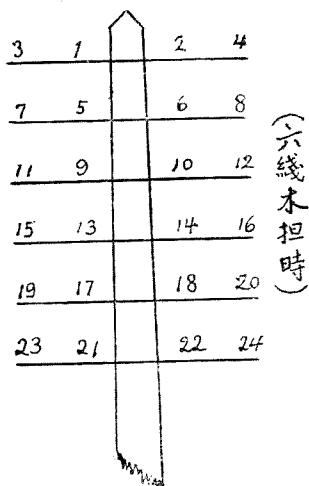 3 1 2 4
7 5 6 8
11 9 10 12
15 13 14 16
19 17 18 20
23 21 22 24
(六綫木担時)